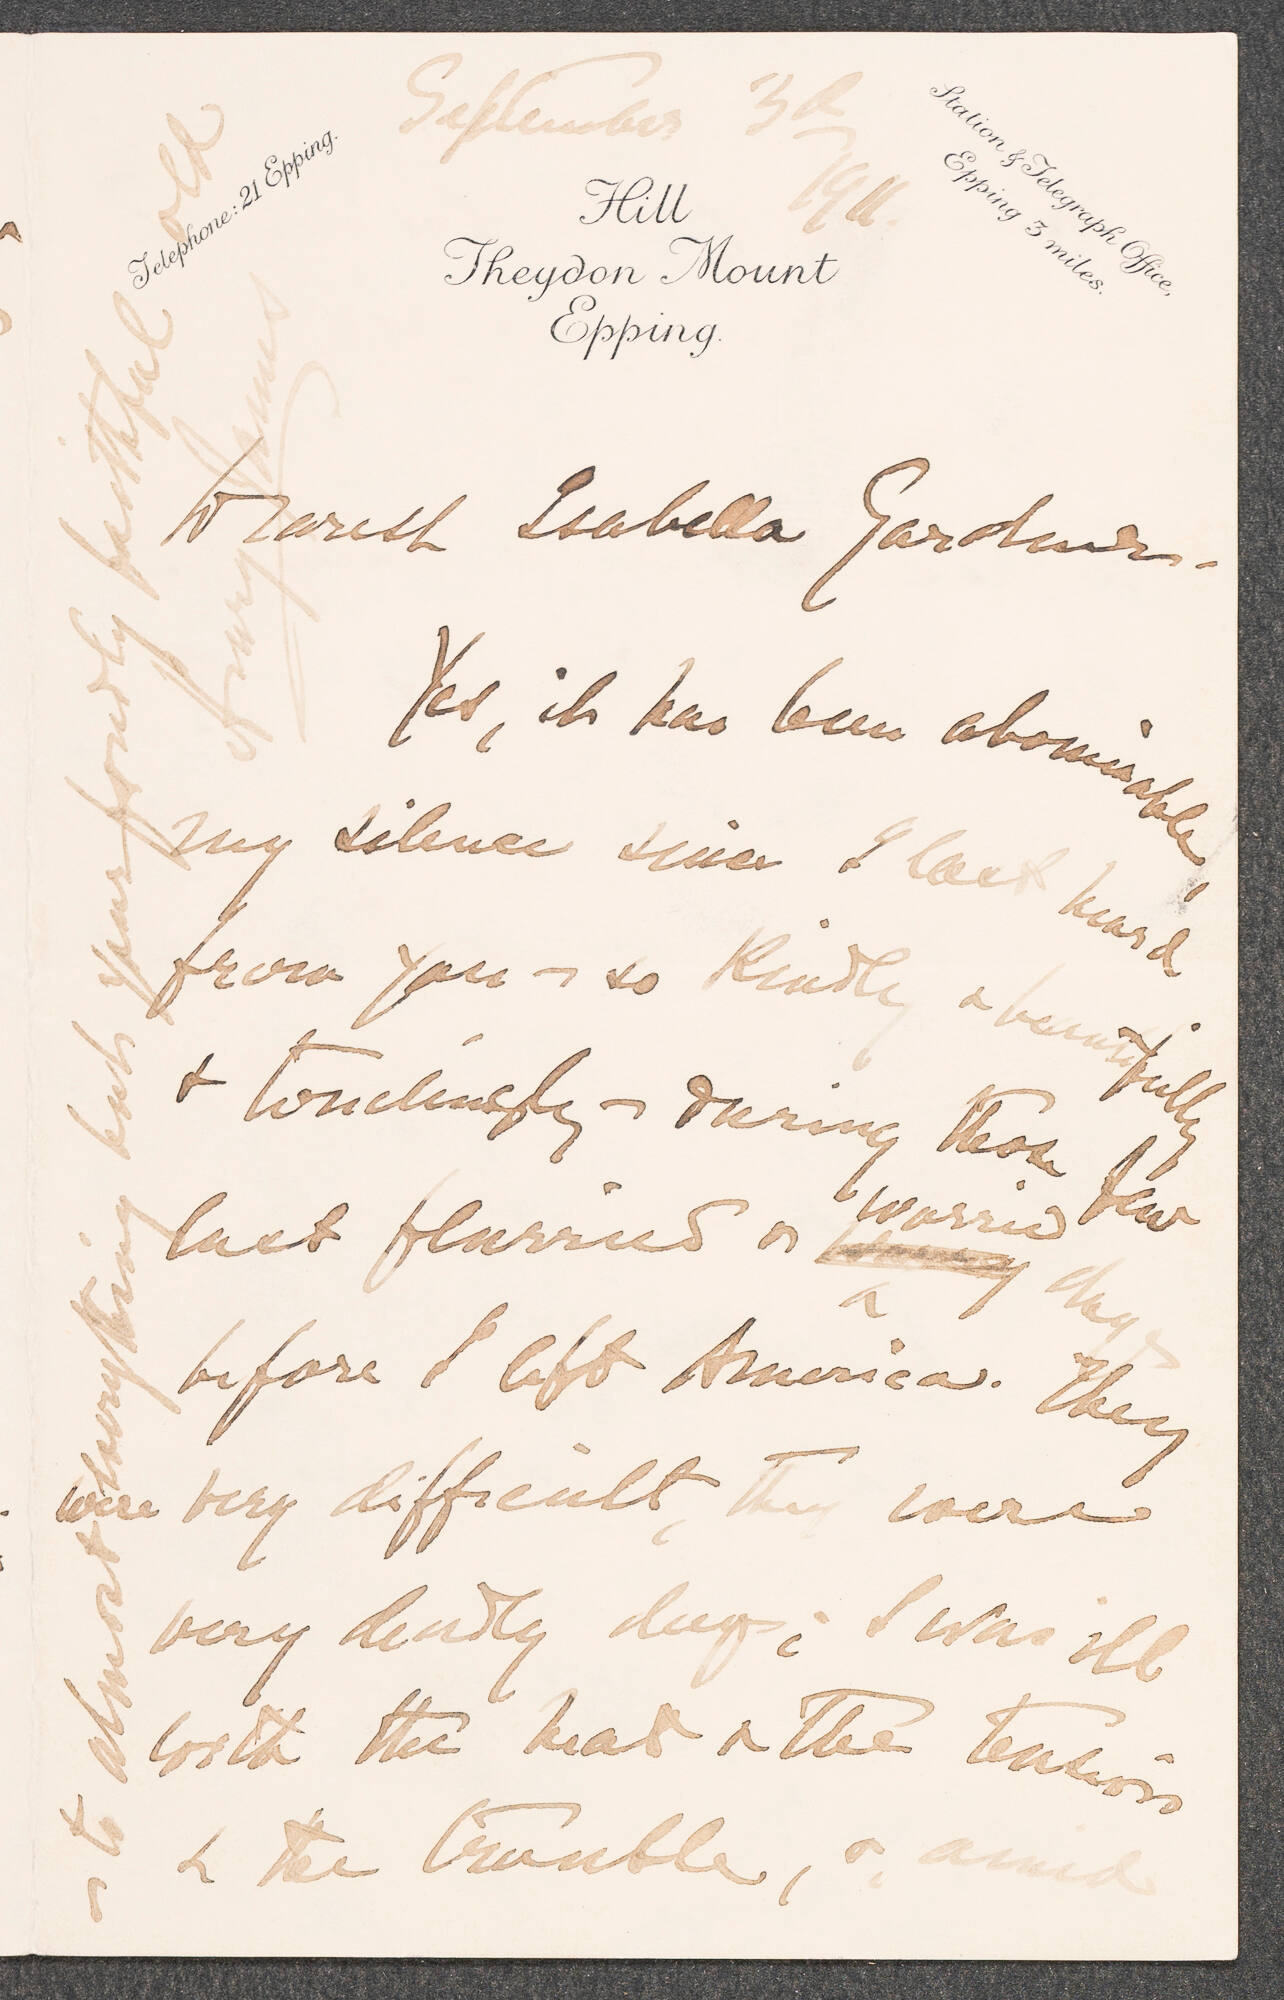 September 3d
1911.
Telephone: 21 Epping.
Station & Telegraph Office,
Epping 3 miles.
Hill
Theydon Mount
Epping.
Dearest Isabella Gardner.
Yes, it has been abominable,
my silence since I last heard
from you – so kindly & beautifully
& touchingly – during those few
last flurried & worried
days
before I left America. They
were very difficult, they were
very deadly days; I was ill
with the heat & the tension
& the trouble, & amid
– to almost everything but your fondly faithful old
Henry James